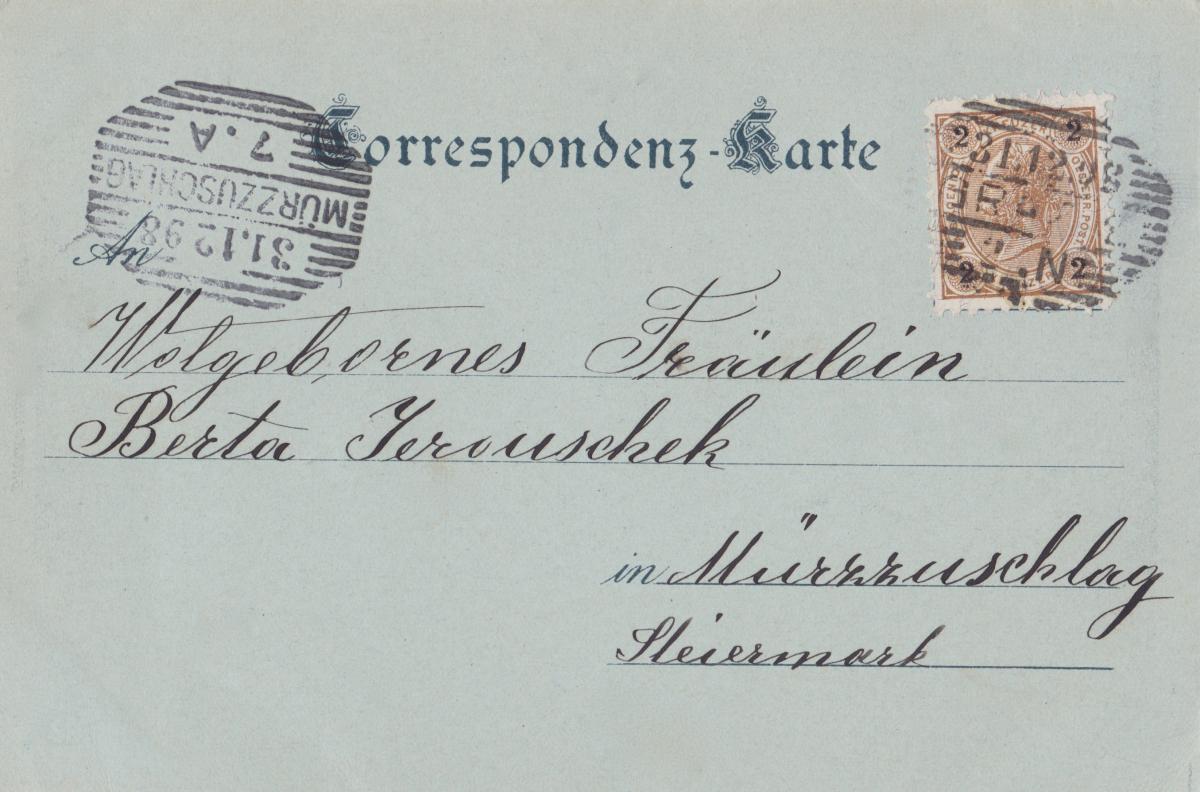 Correspondenz-Karte
7. A
MÜRZZUSCHLAG
31.12.98
2 2
31.12
2 2
An
Wolgebornes Fräulein
Berta Jerouschek
in Mürzzuschlag
Steiermark